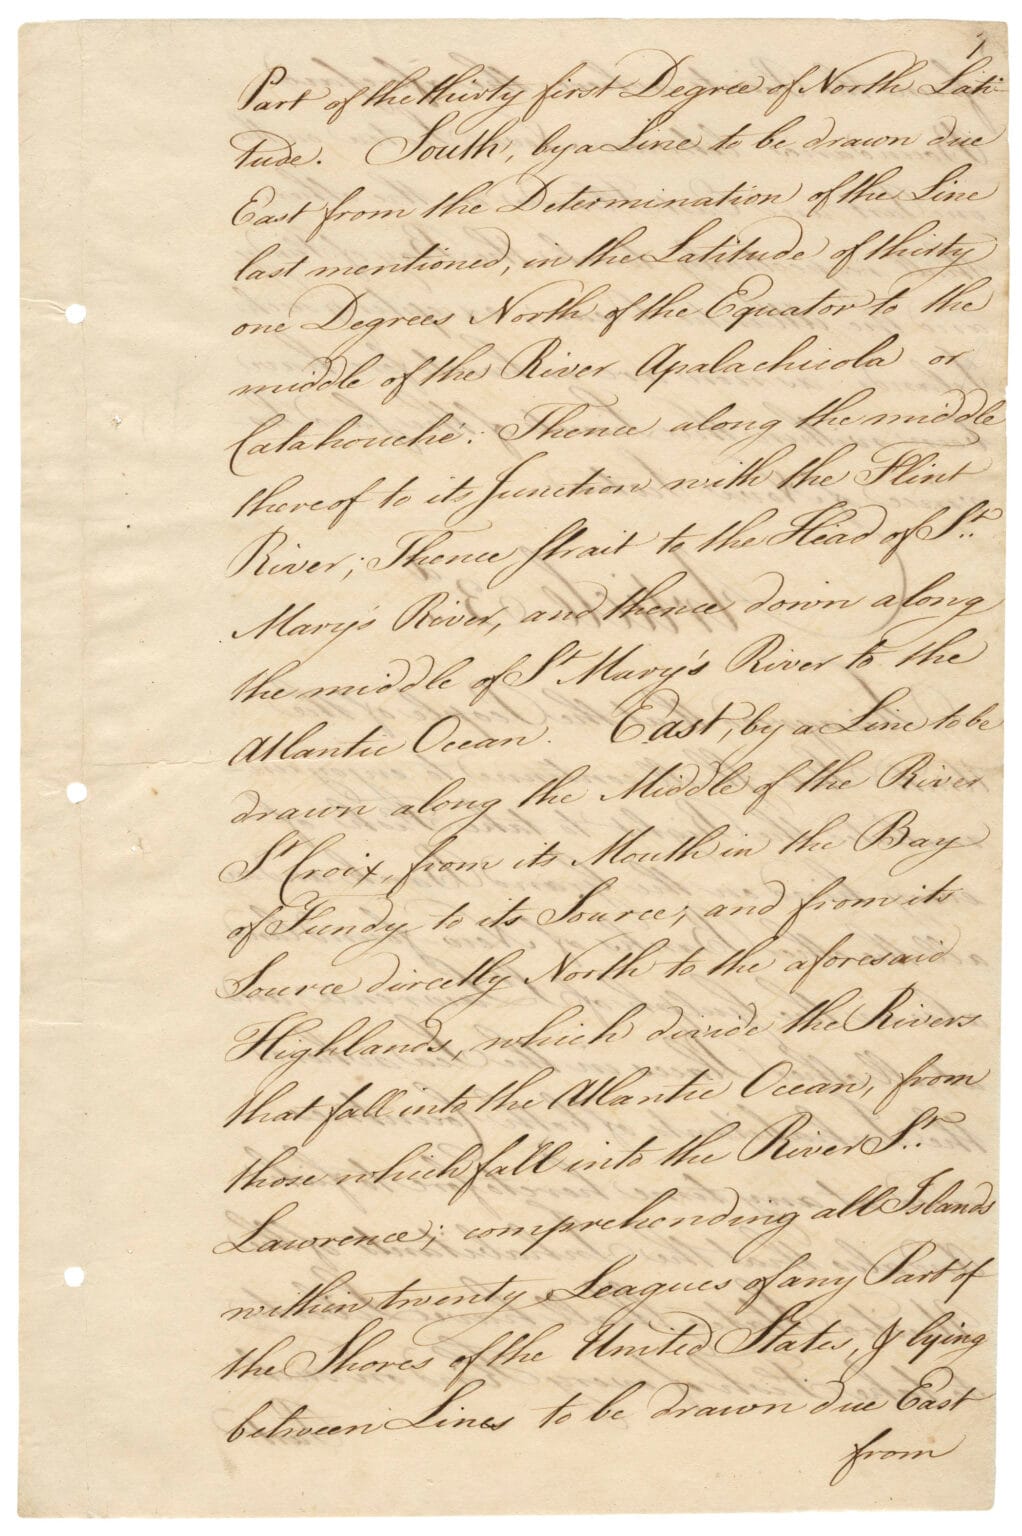 7
Part of the thirty first Degree of North Lati-
tude. South, by a Line to be drawn due
East from the Determination of the Line
last mentioned, in the Latitude of thirty
one Degrees North of the Equator to the
middle of the River Apalachicola or
Catahouche. Thence along the middle
thereof to its Junction with the Flint
River; Thence strait to the Head of St.
Mary's River, and thence down along
the middle of St Mary's River to the
Atlantic Ocean. East, by a Line to be
drawn along the Middle of the River
St Croix, from its Mouth in the Bay
of Fundy to its Source; and from its
Source directly North to the aforesaid
Highlands, which divide the Rivers
that fall into the Atlantic Ocean, from
those which fall into the River St.
Lawrence; comprehending all Islands
within twenty Leagues of any Part of
the Shores of the United States, & lying
between Lines to be drawn due East
from